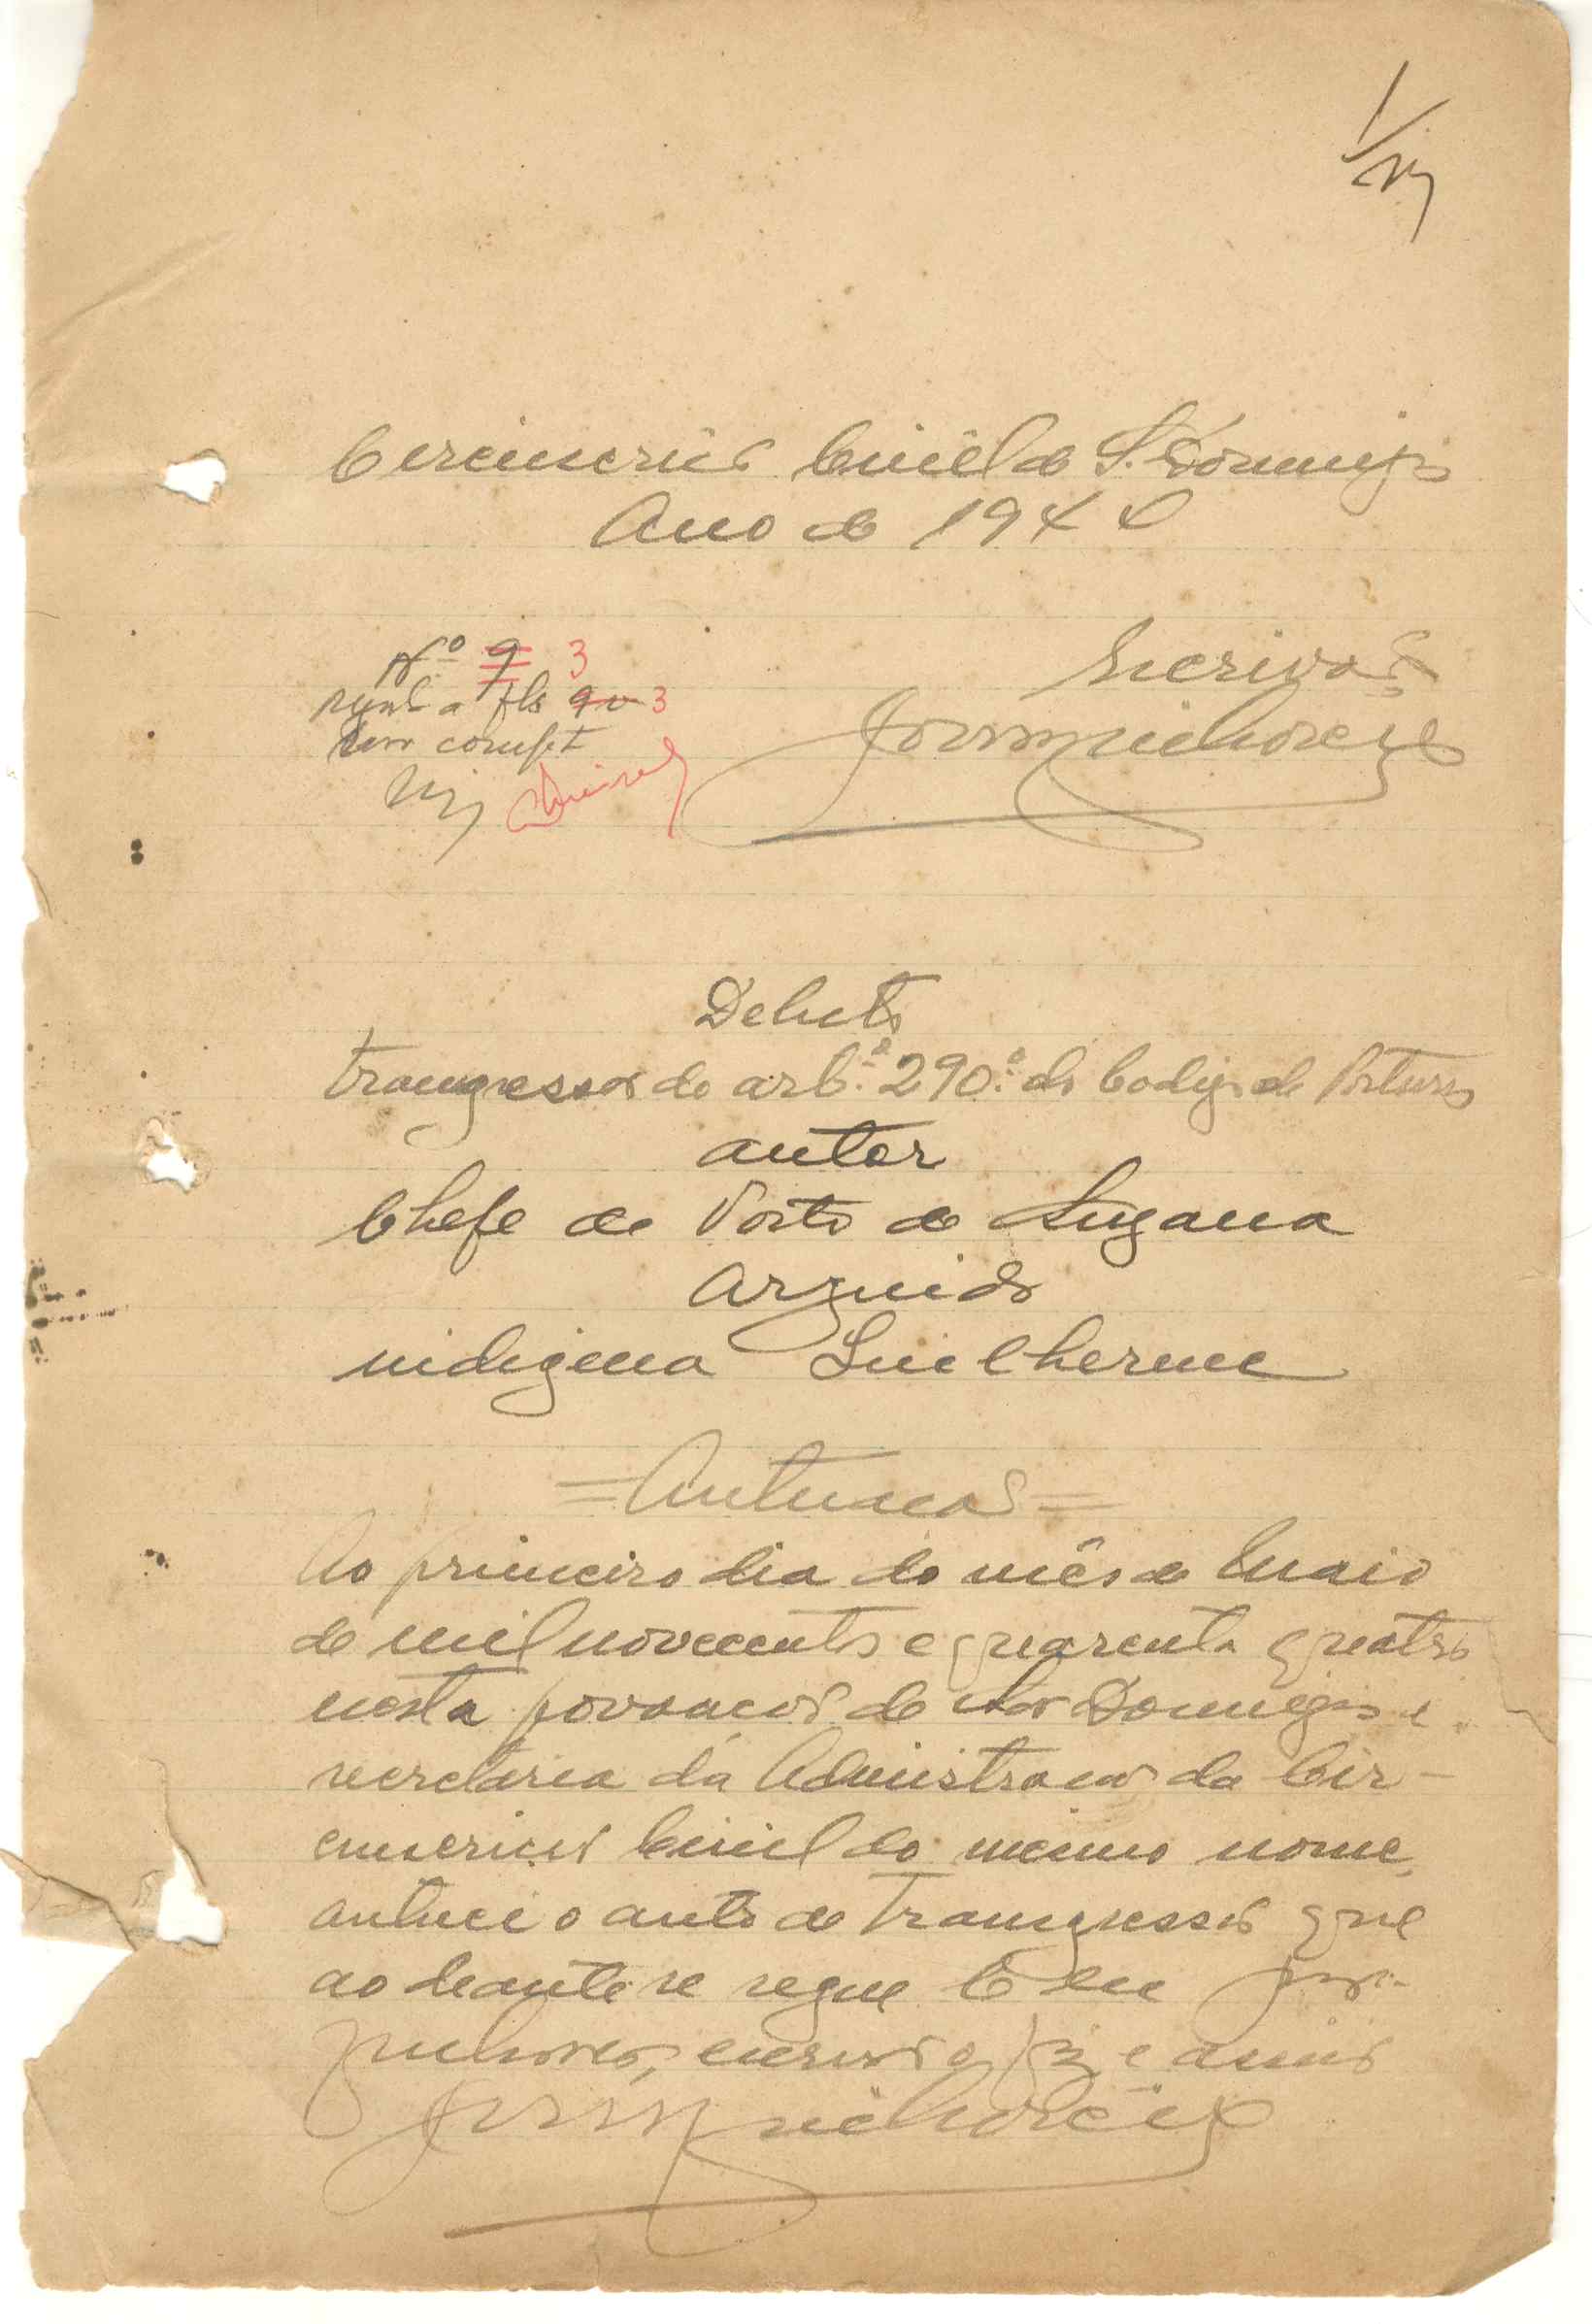 1
Circunscrição Civil de S. Domingos
Ano de 1944
Nº 9 3
regtd a fls 9v 3
Escrivão
comp.t
Delicto
Transgressão do artº. 290º. do Codigo de Posturas
autor
Chefe do Posto de Suzana
Arguido
indigena Guilherme
=Autuação=
Ao primeiro dia do mês de Maio
de mil novecentos e quarenta e quatro
nesta povoação de São Domingos e
secretaria da Administração da Cir-
cunscrição Civil do mesmo nome,
autuei o auto de Transgressão que
ao deante se segue E eu
escrivão o fiz e assino